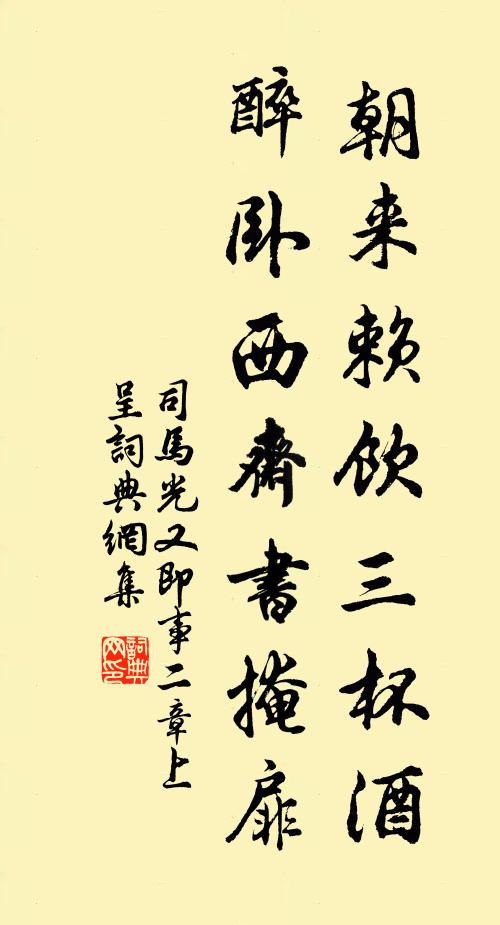 朝来赖饮三杯酒
醉卧西斋書掩扉
司馬光又即事二章上
呈詞典網集
詞典网印